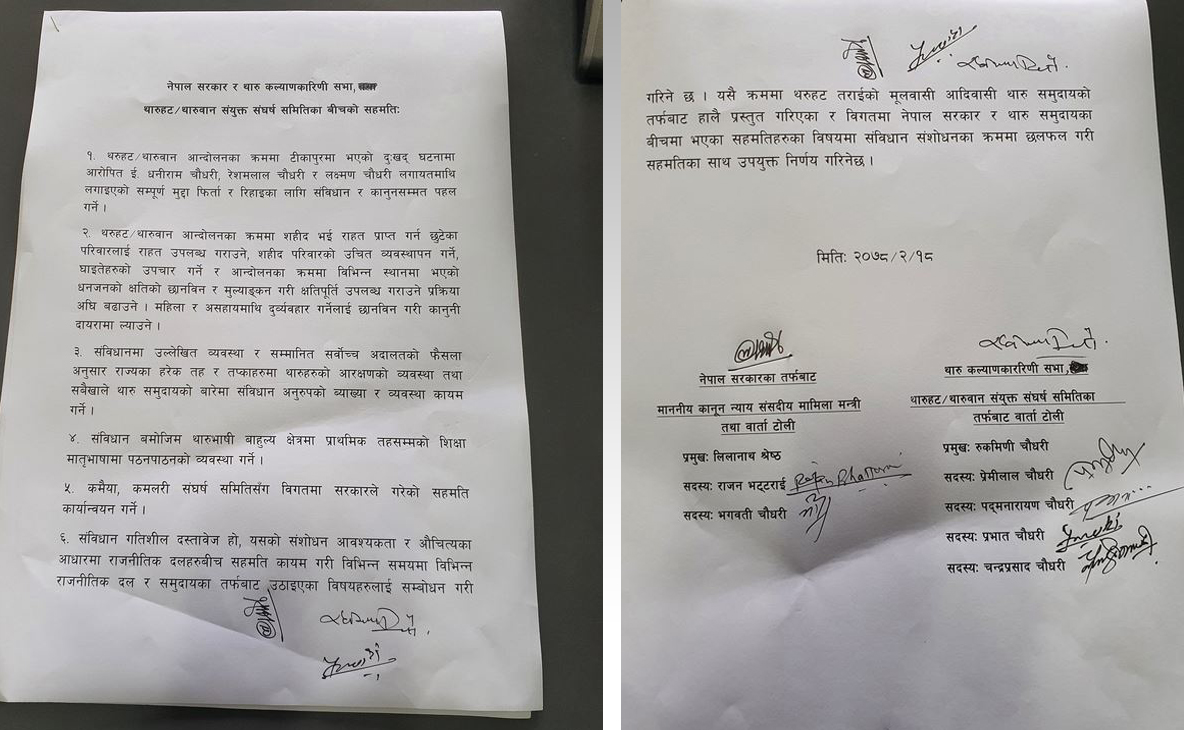 नेपाल सरकार र थारु कल्याणकारिणी सभा,
थारुहट/थारुवान संयुक्त संघर्ष समितिका बीचको सहमति:
१. थरुहट/थारुवान आन्दोलनका क्रममा टीकापुरमा भएको दु:खद् घटनामा
आरोपित ई. धनीराम चौधरी, रेशमलाल चौधरी र लक्ष्मण चौधरी लगायतमाथि
लगाइएको सम्पूर्ण मुद्दा फिर्ता र रिहाइका लागि संविधान र कानुनसम्मत पहल
गर्ने ।
२. थरुहट/थारुवान आन्दोलनका क्रममा शहीद भई राहत प्राप्त गर्न छुटेका
परिवारलाई राहत उपलब्ध गराउने, शहीद परिवारको उचित व्यवस्थापन गर्ने,
घाइतेहरुको उपचार गर्ने र आन्दोलनका क्रममा विभिन्न स्थानमा भएको
धनजनको क्षतिको छानविन र मुल्याङ्कन गरी क्षतिपूर्ति उपलब्ध गराउने प्रक्रिया
अघि बढाउने । महिला र असहायमाथि दुर्व्यवहार गर्नेलाई छानविन गरी कानुनी
दायरामा ल्याउने ।
३. संविधानमा उल्लेखित व्यवस्था र सम्मानित सर्वोच्च अदालतको फैसला
अनुसार राज्यका हरेक तह र तप्काहरुमा थारुहरुको आरक्षणको व्यवस्था तथा
सबैखाले थारु समुदायको बारेमा संविधान अनुरुपको ब्याख्या र व्यवस्था कायम
गर्ने ।
४. संविधान बमोजिम थारुभाषी बाहुल्य क्षेत्रमा प्राथमिक तहसम्मको शिक्षा
मातृभाषामा पठनपाठनको व्यवस्था गर्ने ।
५. कमैया, कमलरी संघर्ष समितिसँग विगतमा सरकारले गरेको सहमति
कार्यान्वयन गर्ने ।
६. संविधान गतिशील दस्तावेज हो, यसको संशोधन आवश्यकता र औचित्यका
आधारमा राजनीतिक दलहरुबीच सहमति कायम गरी विभिन्न समयमा विभिन्न
राजनीतिक दल र समुदायका तर्फबाट उठाइएका विषयहरुलाई सम्बोधन गरी
गरिने छ । यसै क्रममा थरुहट तराईको मूलवासी आदिवासी थारु समुदायको
तर्फबाट हालै प्रस्तुत गरिएका र विगतमा नेपाल सरकार र थारु समुदायका
बीचमा भएका सहमतिहरुका विषयमा संविधान संशोधनका क्रममा छलफल गरी
सहमतिका साथ उपयुक्त निर्णय गरिनेछ ।
मिति: २०७८/२/१८
नेपाल सरकारका तर्फबाट
माननीय कानून न्याय संसदीय मामिला मन्त्री
तथा वार्ता टोली
प्रमुख: लिलानाथ श्रेष्ठ
सदस्य: राजन भट्टराई Rajan Bhattarai
सदस्य: भगवती चौधरी
थारु कल्याणकाररिणी सभा,
थारुहट/थारुवान संयुक्त संघर्ष समितिका
तर्फबाट वार्ता टोली
प्रमुख: रुकमिणी चौधरी
सदस्य: प्रेमीलाल चौधरी
सदस्य: पद्मनारायण चौधरी
सदस्य: प्रभात चौधरी
सदस्य: चन्द्रप्रसाद चौधरी